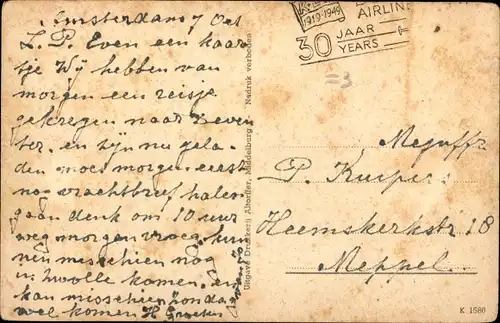 Amsterdam 7 Oct
L. P. Even een kaar
tje Wij hebben van
morgen een reisje
gekregen naar Deven
ter. en zijn nu gela
den moet morgen eerst
nog vrachtbrief halen
gaan denk om 10 uur
weg morgen vroeg kun
nen misschien nog
in Zwolle komen en
kan misschien Zondag
wel komen H Groeten
1919-1949
AIRLIN
30 JAAR
YEARS
=3
Uitgave Drukkerij Altorffer, Middelburg Nadruk verboden
Mejuffr
P. Kuiper
Heemskerkstr 18
Meppel.
K 1580